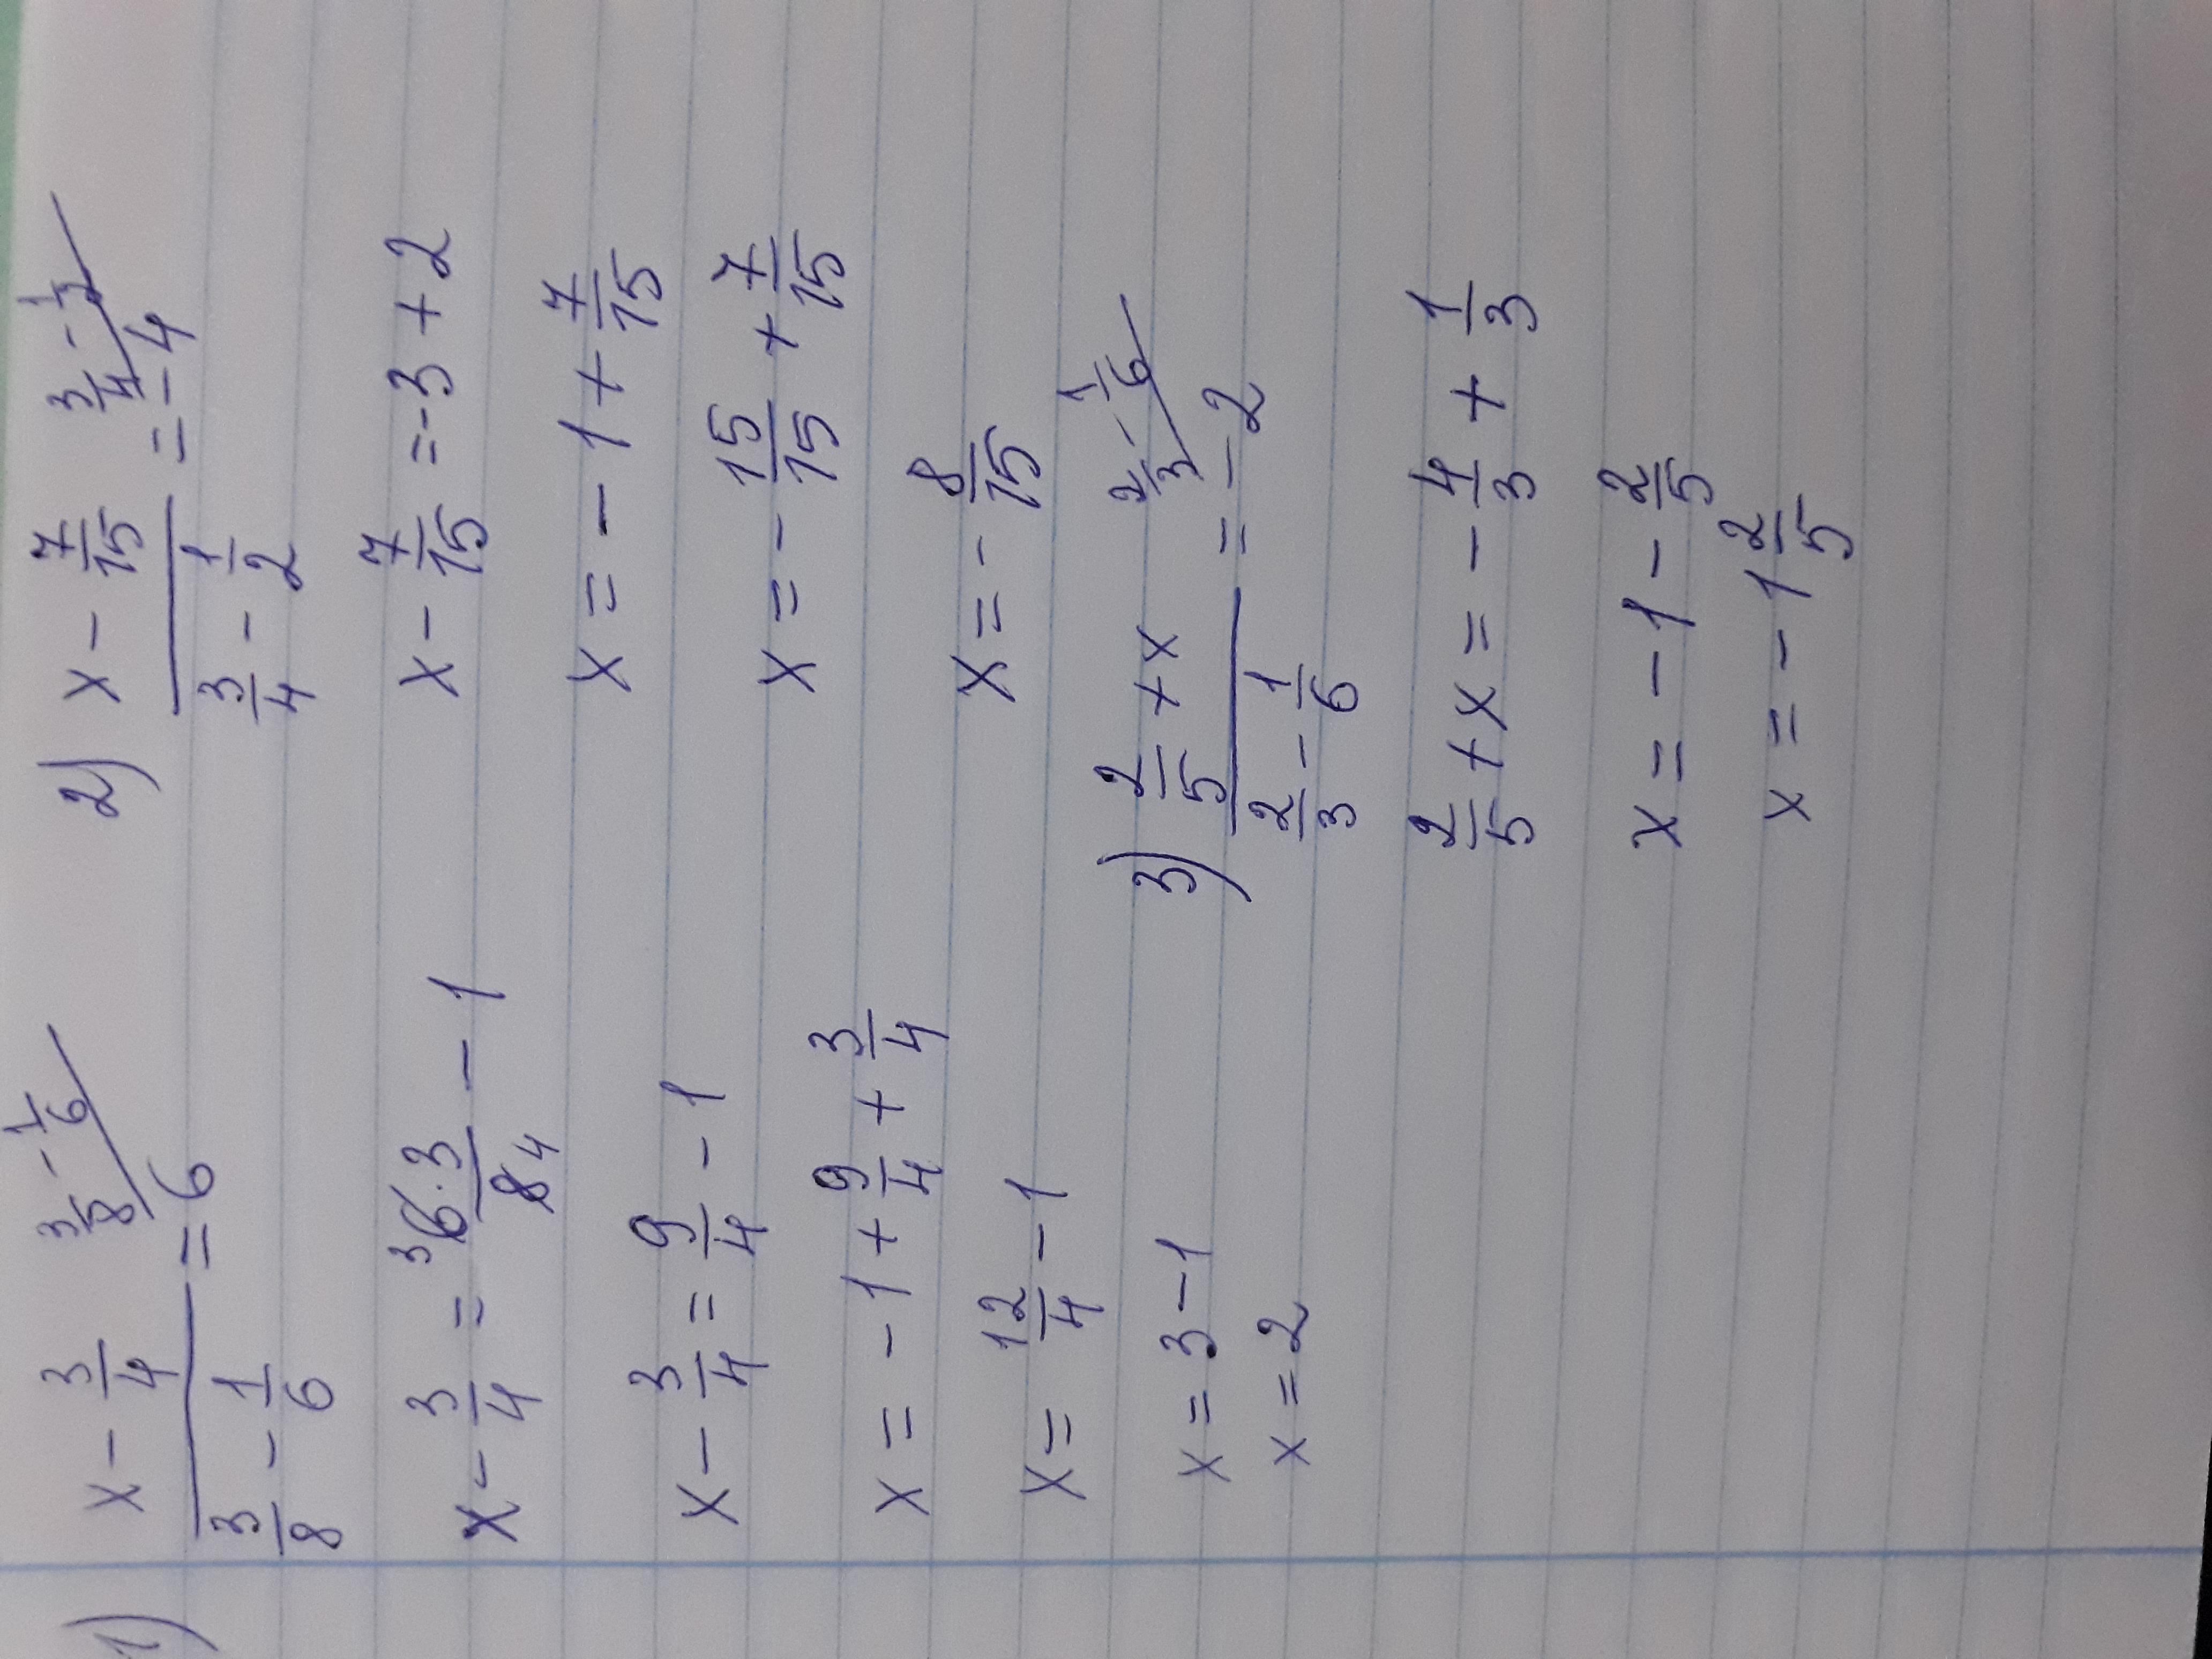 1) (x - 3/4)/(3/8 - 1/6) = 6 3/8 - 1/6
x - 3/4 = ³6·3/8 4 - 1
x - 3/4 = 9/4 - 1
x = - 1 + 9/4 + 3/4
x = 12/4 - 1
x = 3 - 1
x = 2
2) (x - 7/15)/(3/4 - 1/2) = - 4 3/4 - 1/2
x - 7/15 = -3 + 2
x = - 1 + 7/15
x = - 15/15 + 7/15
x = - 8/15
3) (2/5 + x)/(2/3 - 1/6) = - 2 2/3 - 1/6
2/5 + x = - 4/3 + 1/3
x = - 1 - 2/5
x = - 1 2/5